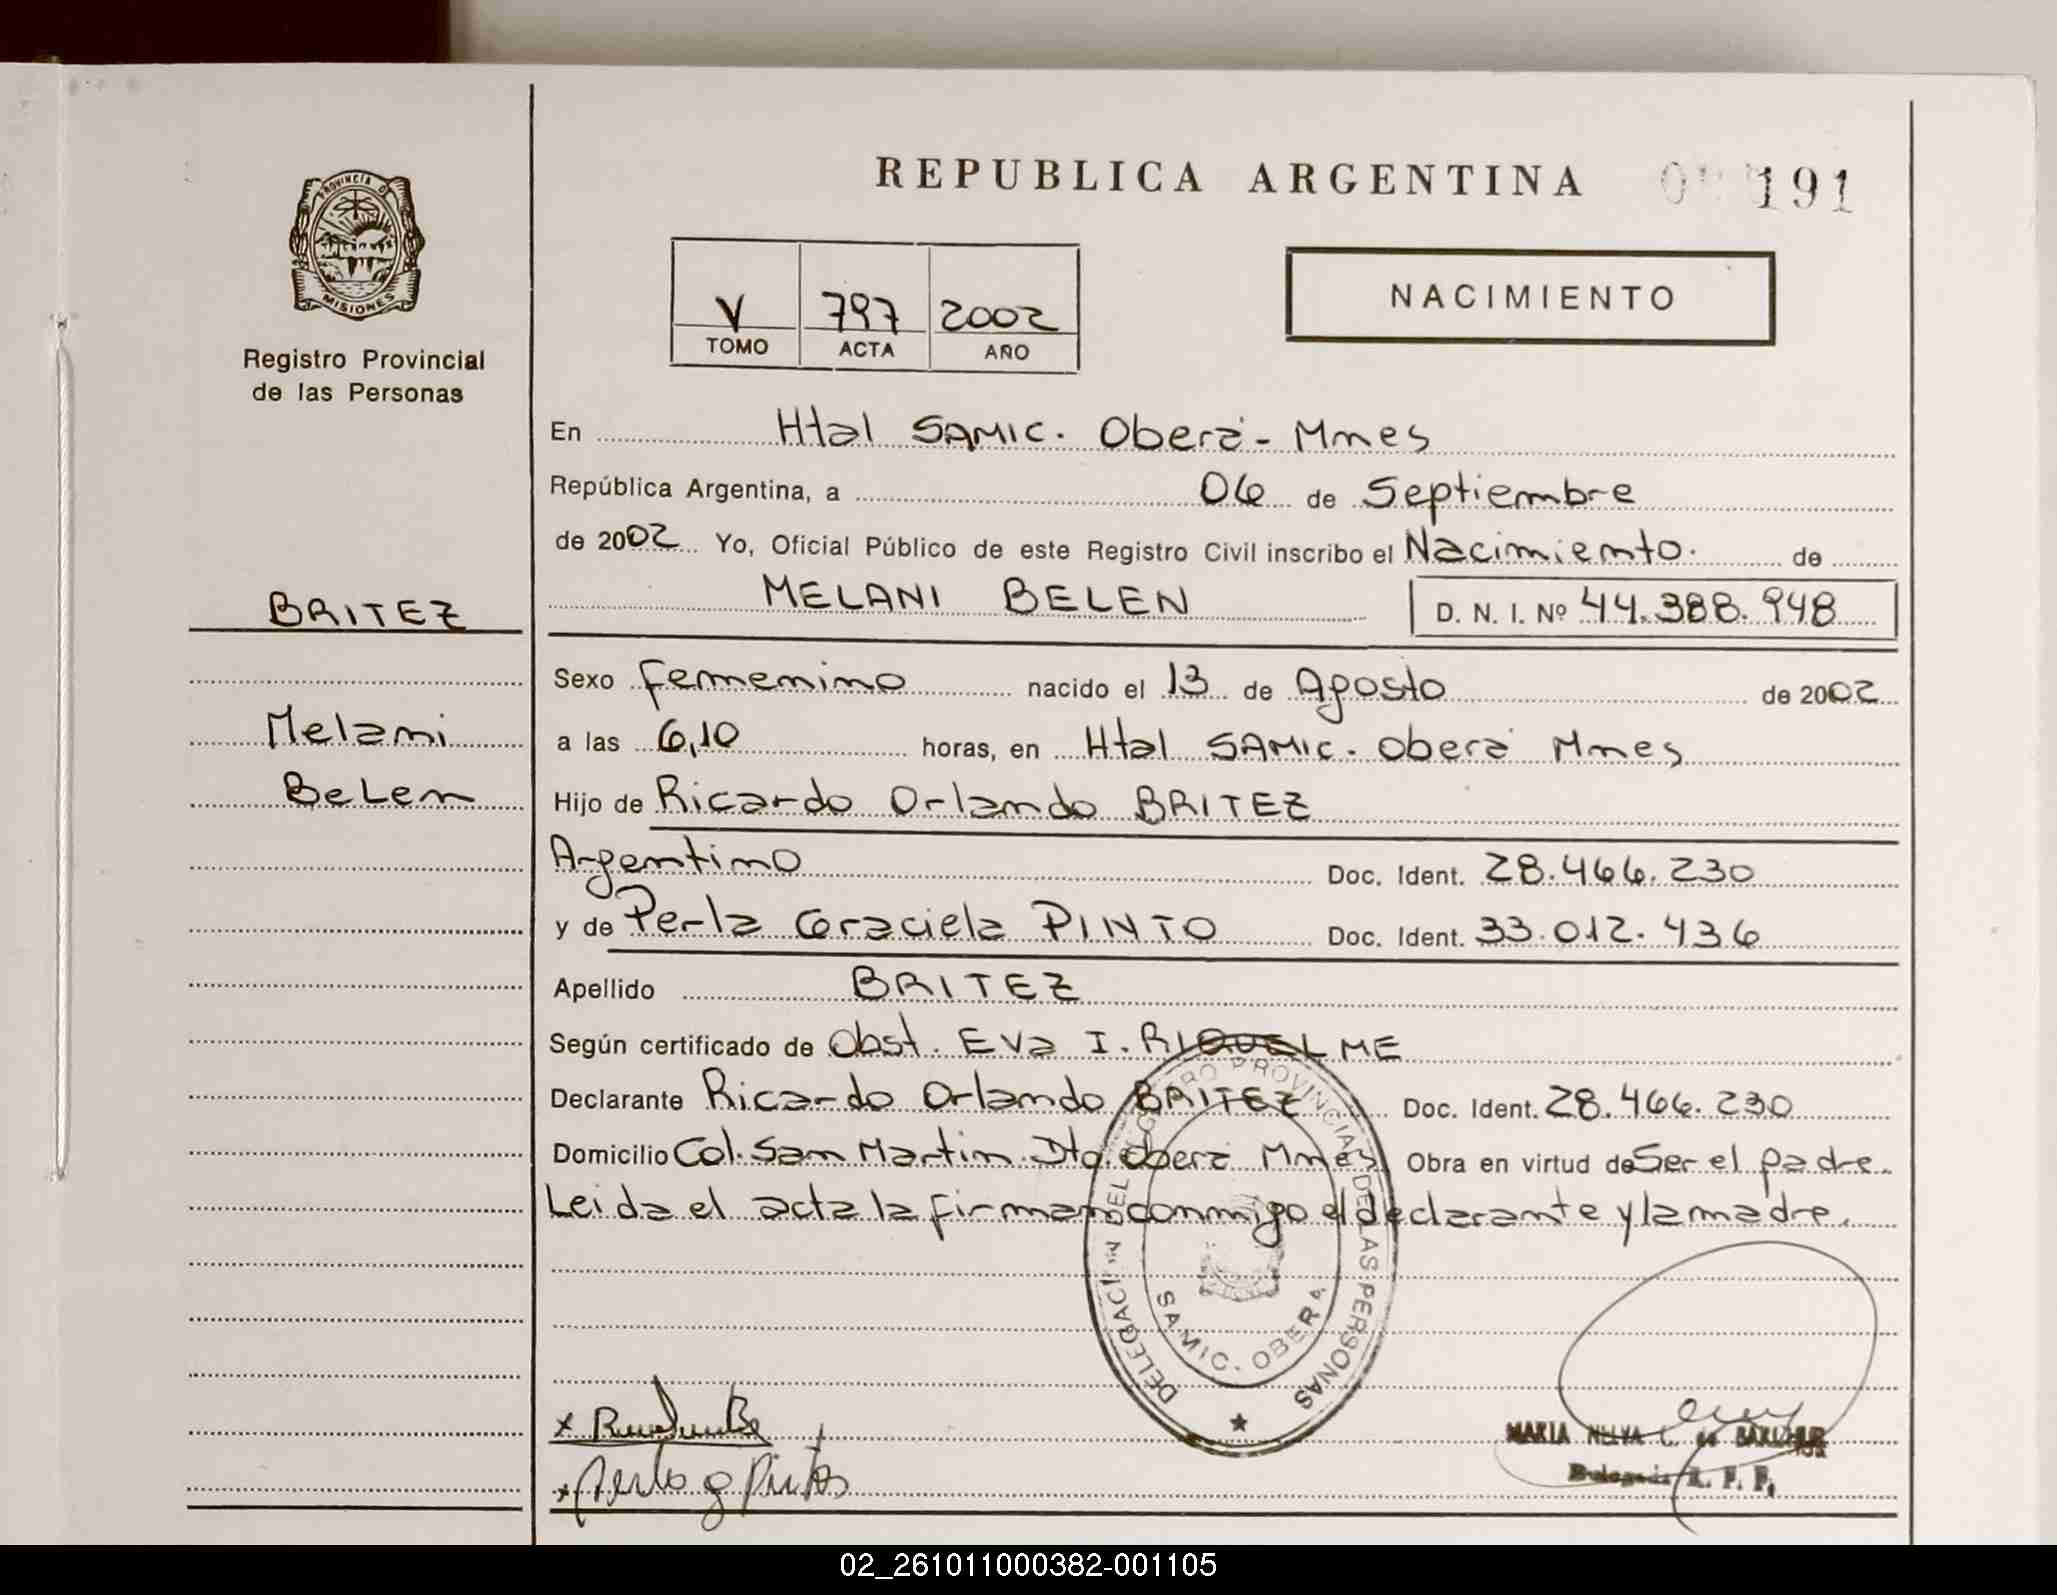 REPUBLICA ARGENTINA
191
PROVINCIA D
MISIONES
Registro Provincial
de las Personas
V 797 2002
TOMO ACTA AÑO
NACIMIENTO
En Htal SAMIC. Oberá - Mnes
República Argentina, a 06 de Septiembre
de 2002 Yo, Oficial Público de este Registro Civil inscribo el Nacimiento. de
MELANI BELEN D. N. I. Nº 44.388.948
BRITEZ
Melani
Belen
Sexo femenino nacido el 13 de Agosto de 2002
a las 6,10 horas, en Htal SAMIC. Oberá Mnes
Hijo de Ricardo Orlando BRITEZ
Argentino Doc. Ident. 28.466.230
y de Perla Graciela PINTO Doc. Ident. 33.012.436
Apellido BRITEZ
Según certificado de Obst. Eva I. RIQUELME
Declarante Ricardo Orlando BRITEZ Doc. Ident. 28.466.230
Domicilio Col. San Martin. Dto. Oberá Mnes Obra en virtud de Ser el padre.
Leida el acta la firman conmigo el declarante y la madre.
DELEGACION DEL REGISTRO PROVINCIAL DE LAS PERSONAS
SAMIC. OBERA
x
x Perla g Pinto
MARIA
R. P. P.
02_261011000382-001105